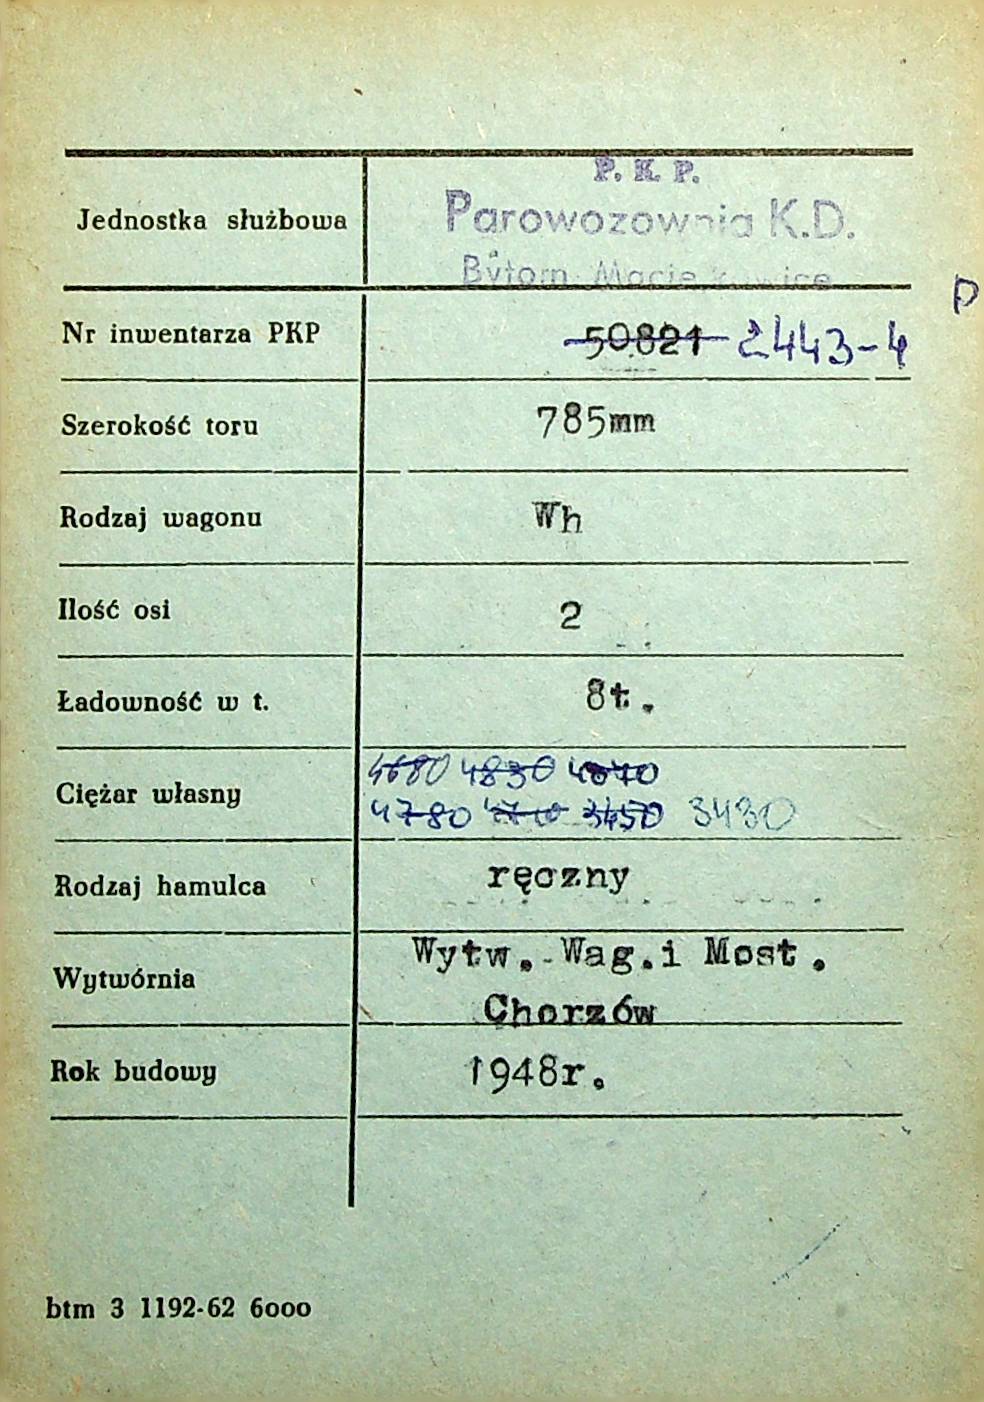 P. K. P.
Jednostka służbowa Parowozownia K.D.
Bytom Maciejkowice
P
Nr inwentarza PKP 50.821 2443-4
Szerokość toru 785mm
Rodzaj wagonu Wh
Ilość osi 2
Ładowność w t. 8t.
4680 4830
Ciężar własny
4780 3450 3430
Rodzaj hamulca ręczny
Wytw. Wag. i Most.
Wytwórnia
Chorzów
Rok budowy 1948r.
btm 3 1192-62 6000